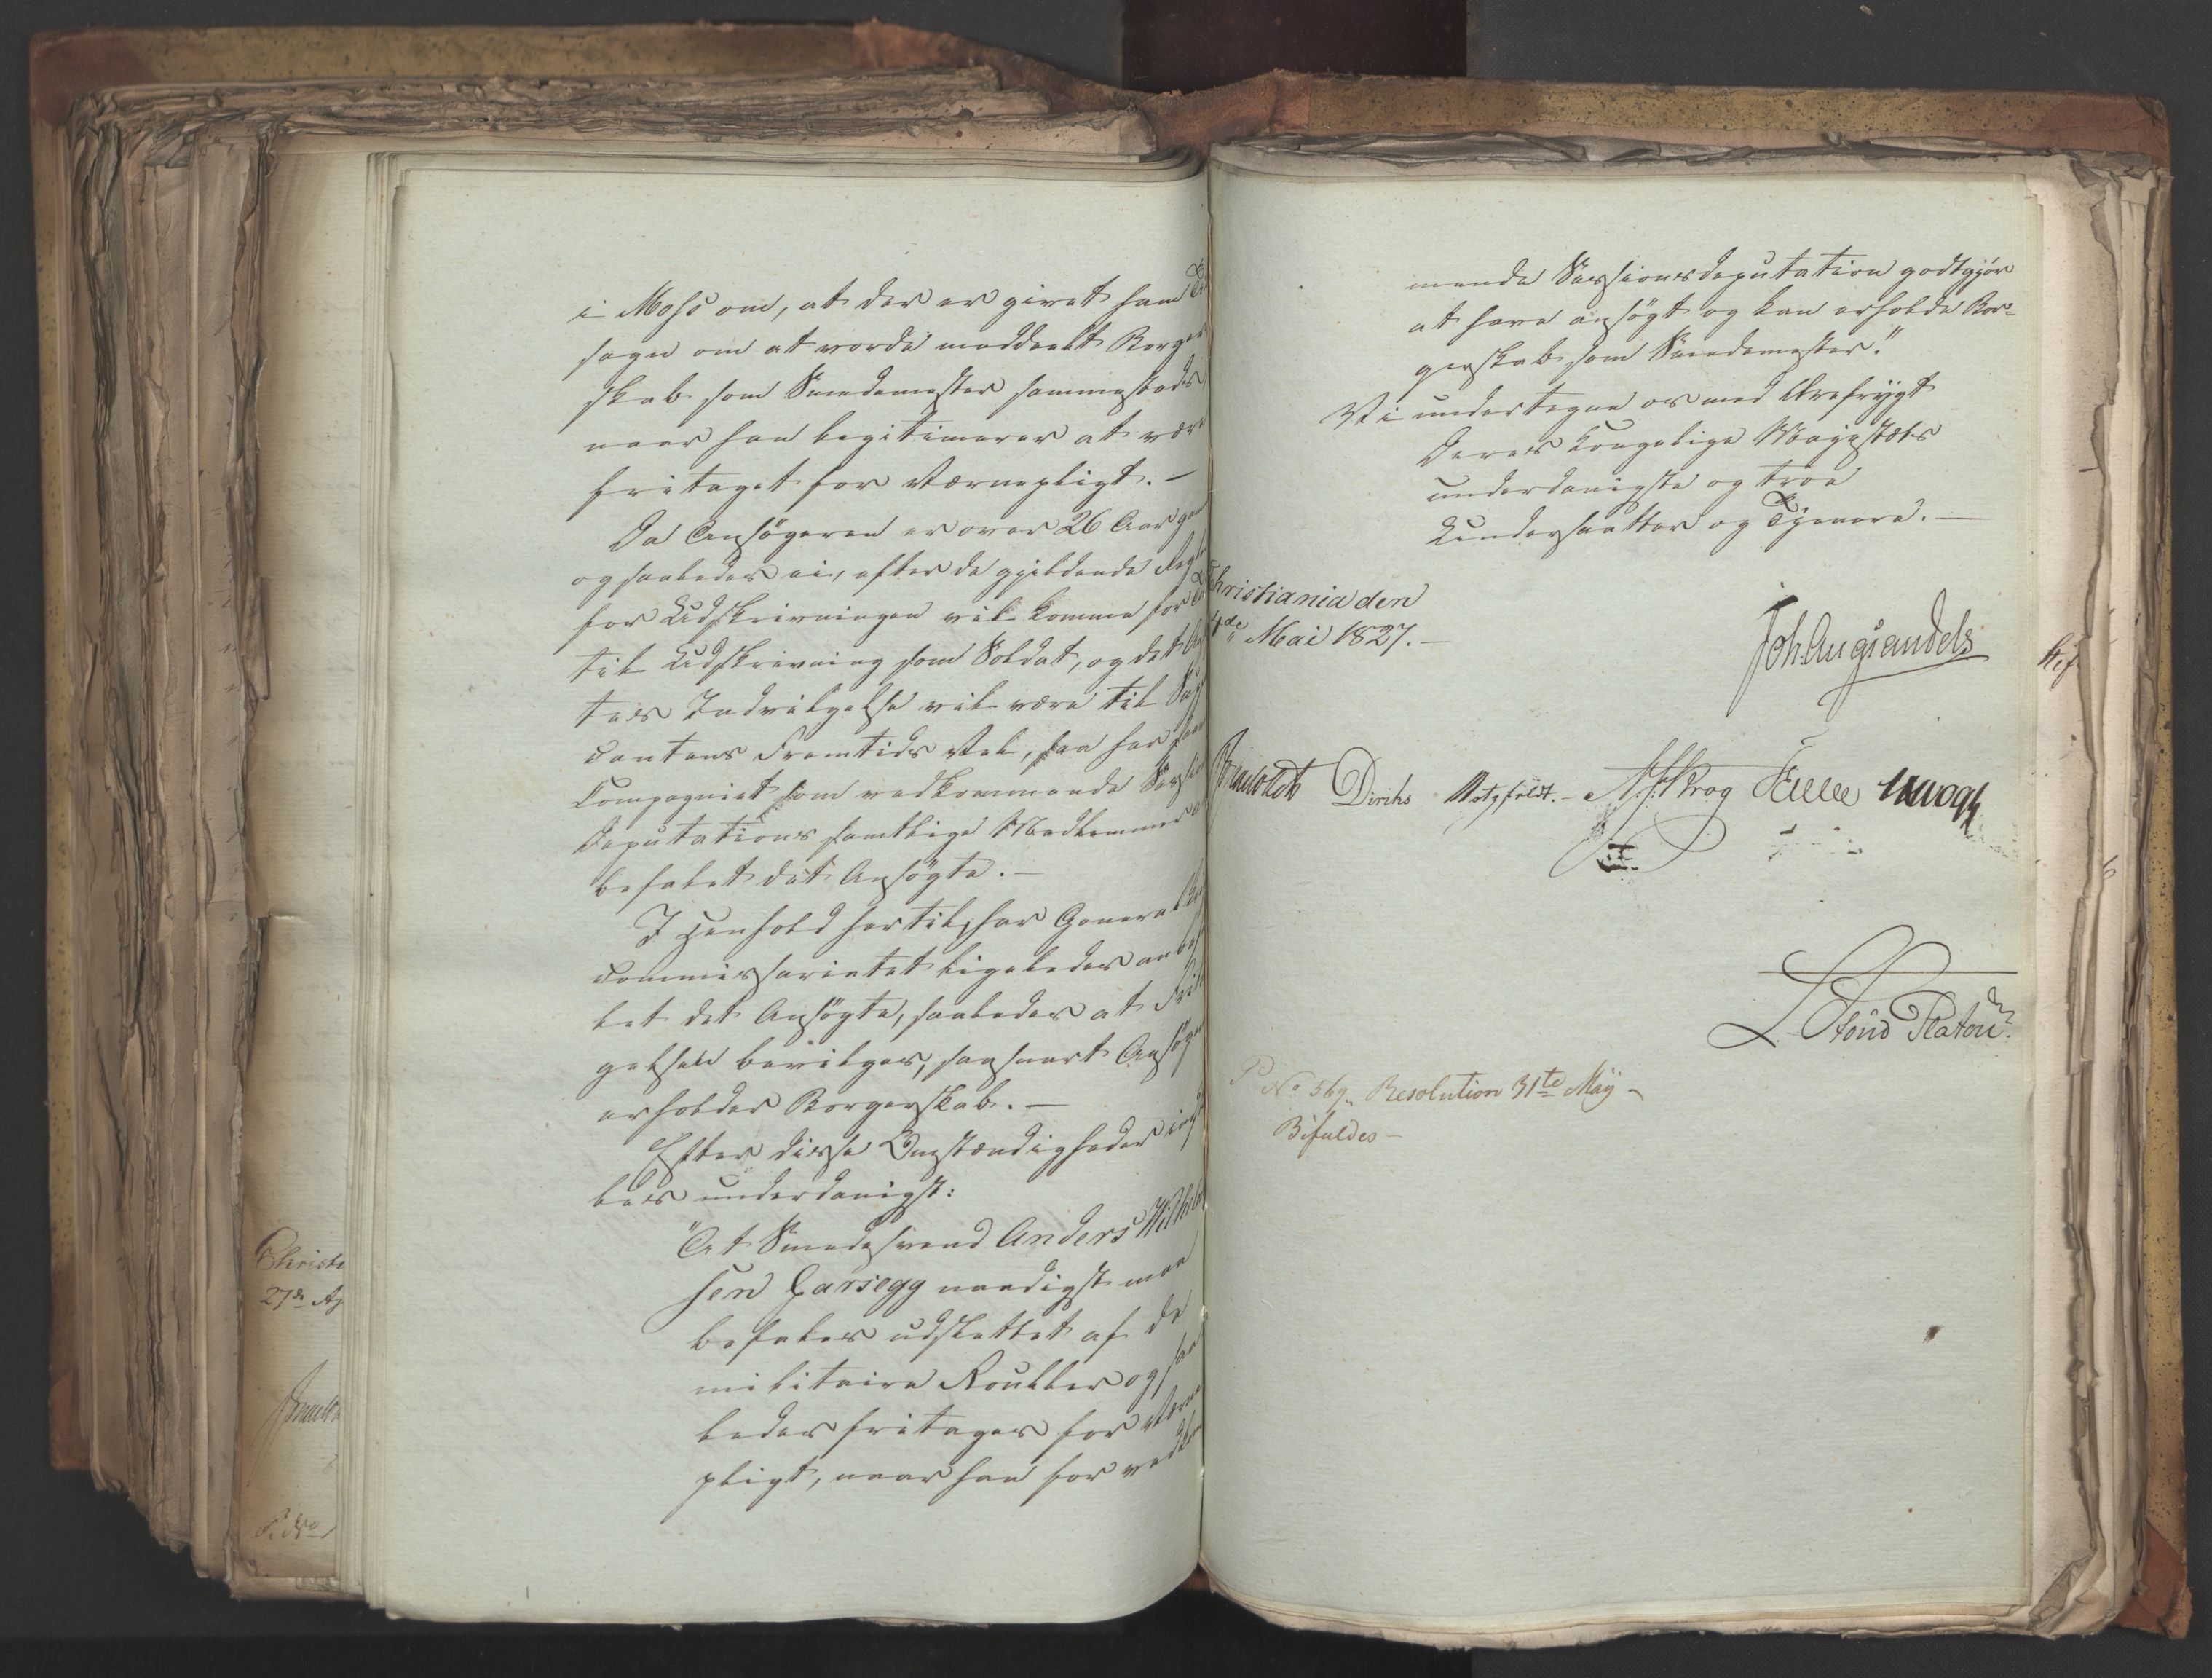 i Moss om, at der er givet ham
sagn om at vorde meddeelt Borger
skab som Smedemester sammesteds,
naar han legitimerer at være
fritaget for Værnepligt. —
Da Ansøgeren er over 26 Aar
og saaledes ei, efter de gjeldende
for Udskrivningen vil komme for
til Udskrivning som Soldat, og det
tes Indvilgelse vil være til
cantens Fremtids Vel, saa har
Compagniet som vedkommende
Deputations samtlige Medlemmer
befalet det Ansøgte. —
I Henhold hertil, har General
commissariatet ligeledes
let det Ansøgte, saaledes at
gelsen bevilges, saasnart
erholder Borgerskab. —
Efter disse Omstændigheder
les underdanigst:
"At Smedesvend Anders
sen Garsegg naadigst maa
befales udslettet af de
militaire Rouller og saa
ledes fritages for Værne
pligt, naar han for
mende Sessionsdeputation godtgjør
at have ansøgt og kan erholde Bor=
gerskab som Smedemester."
Vi undertegne os med Ærefrygt
Deres Kongelige Majestæts
underdanigste og troe
Undersaatter og Tjenere. —
Christiania den
4de Mai 1827. —
Joh. Aug Sandels
Diriks Motzfeldt. — Krog
Christi
27de Ap
No 569. Resolution 31te Maÿ —
Bifaldes —